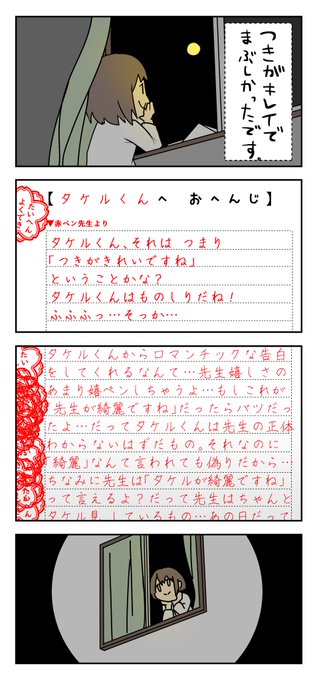 つきがキレイで
まぶしかったです。
【タケルくんへ おへんじ】
たいへん
よくでき
▼赤ペン先生より
タケルくん、それは つまり
「つきがきれいですね」
ということかな?
タケルくんはものしりだね!
ふふふっ…そっか…
たい
タケルくんからロマンチックな告白
をしてくれるなんて…先生嬉しさの
あまり嬉ペンしちゃうよ…もしこれが
「先生が綺麗ですね」だったらバツだっ
たよ…だってタケルくんは先生の正体
わからないはずだもの。それなのに
「綺麗」なんて言われても偽りだから…
ちなみに先生は「タケルが綺麗ですね」
って言えるよ?だって先生はちゃんと
タケル見しているもの…あの日だって